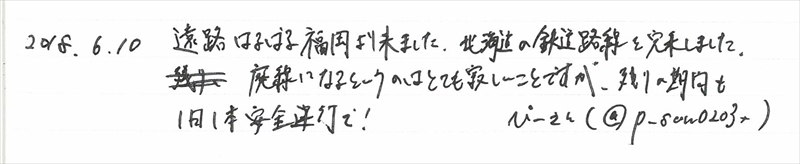 2018.6.10 遠路はるばる福岡より来ました。北海道の鉄道路線を完乗しました。
廃線になるというのはとても寂しいことですが、残りの期間も
1日1本安全運行で! ぴーさん(@p_san0203x)